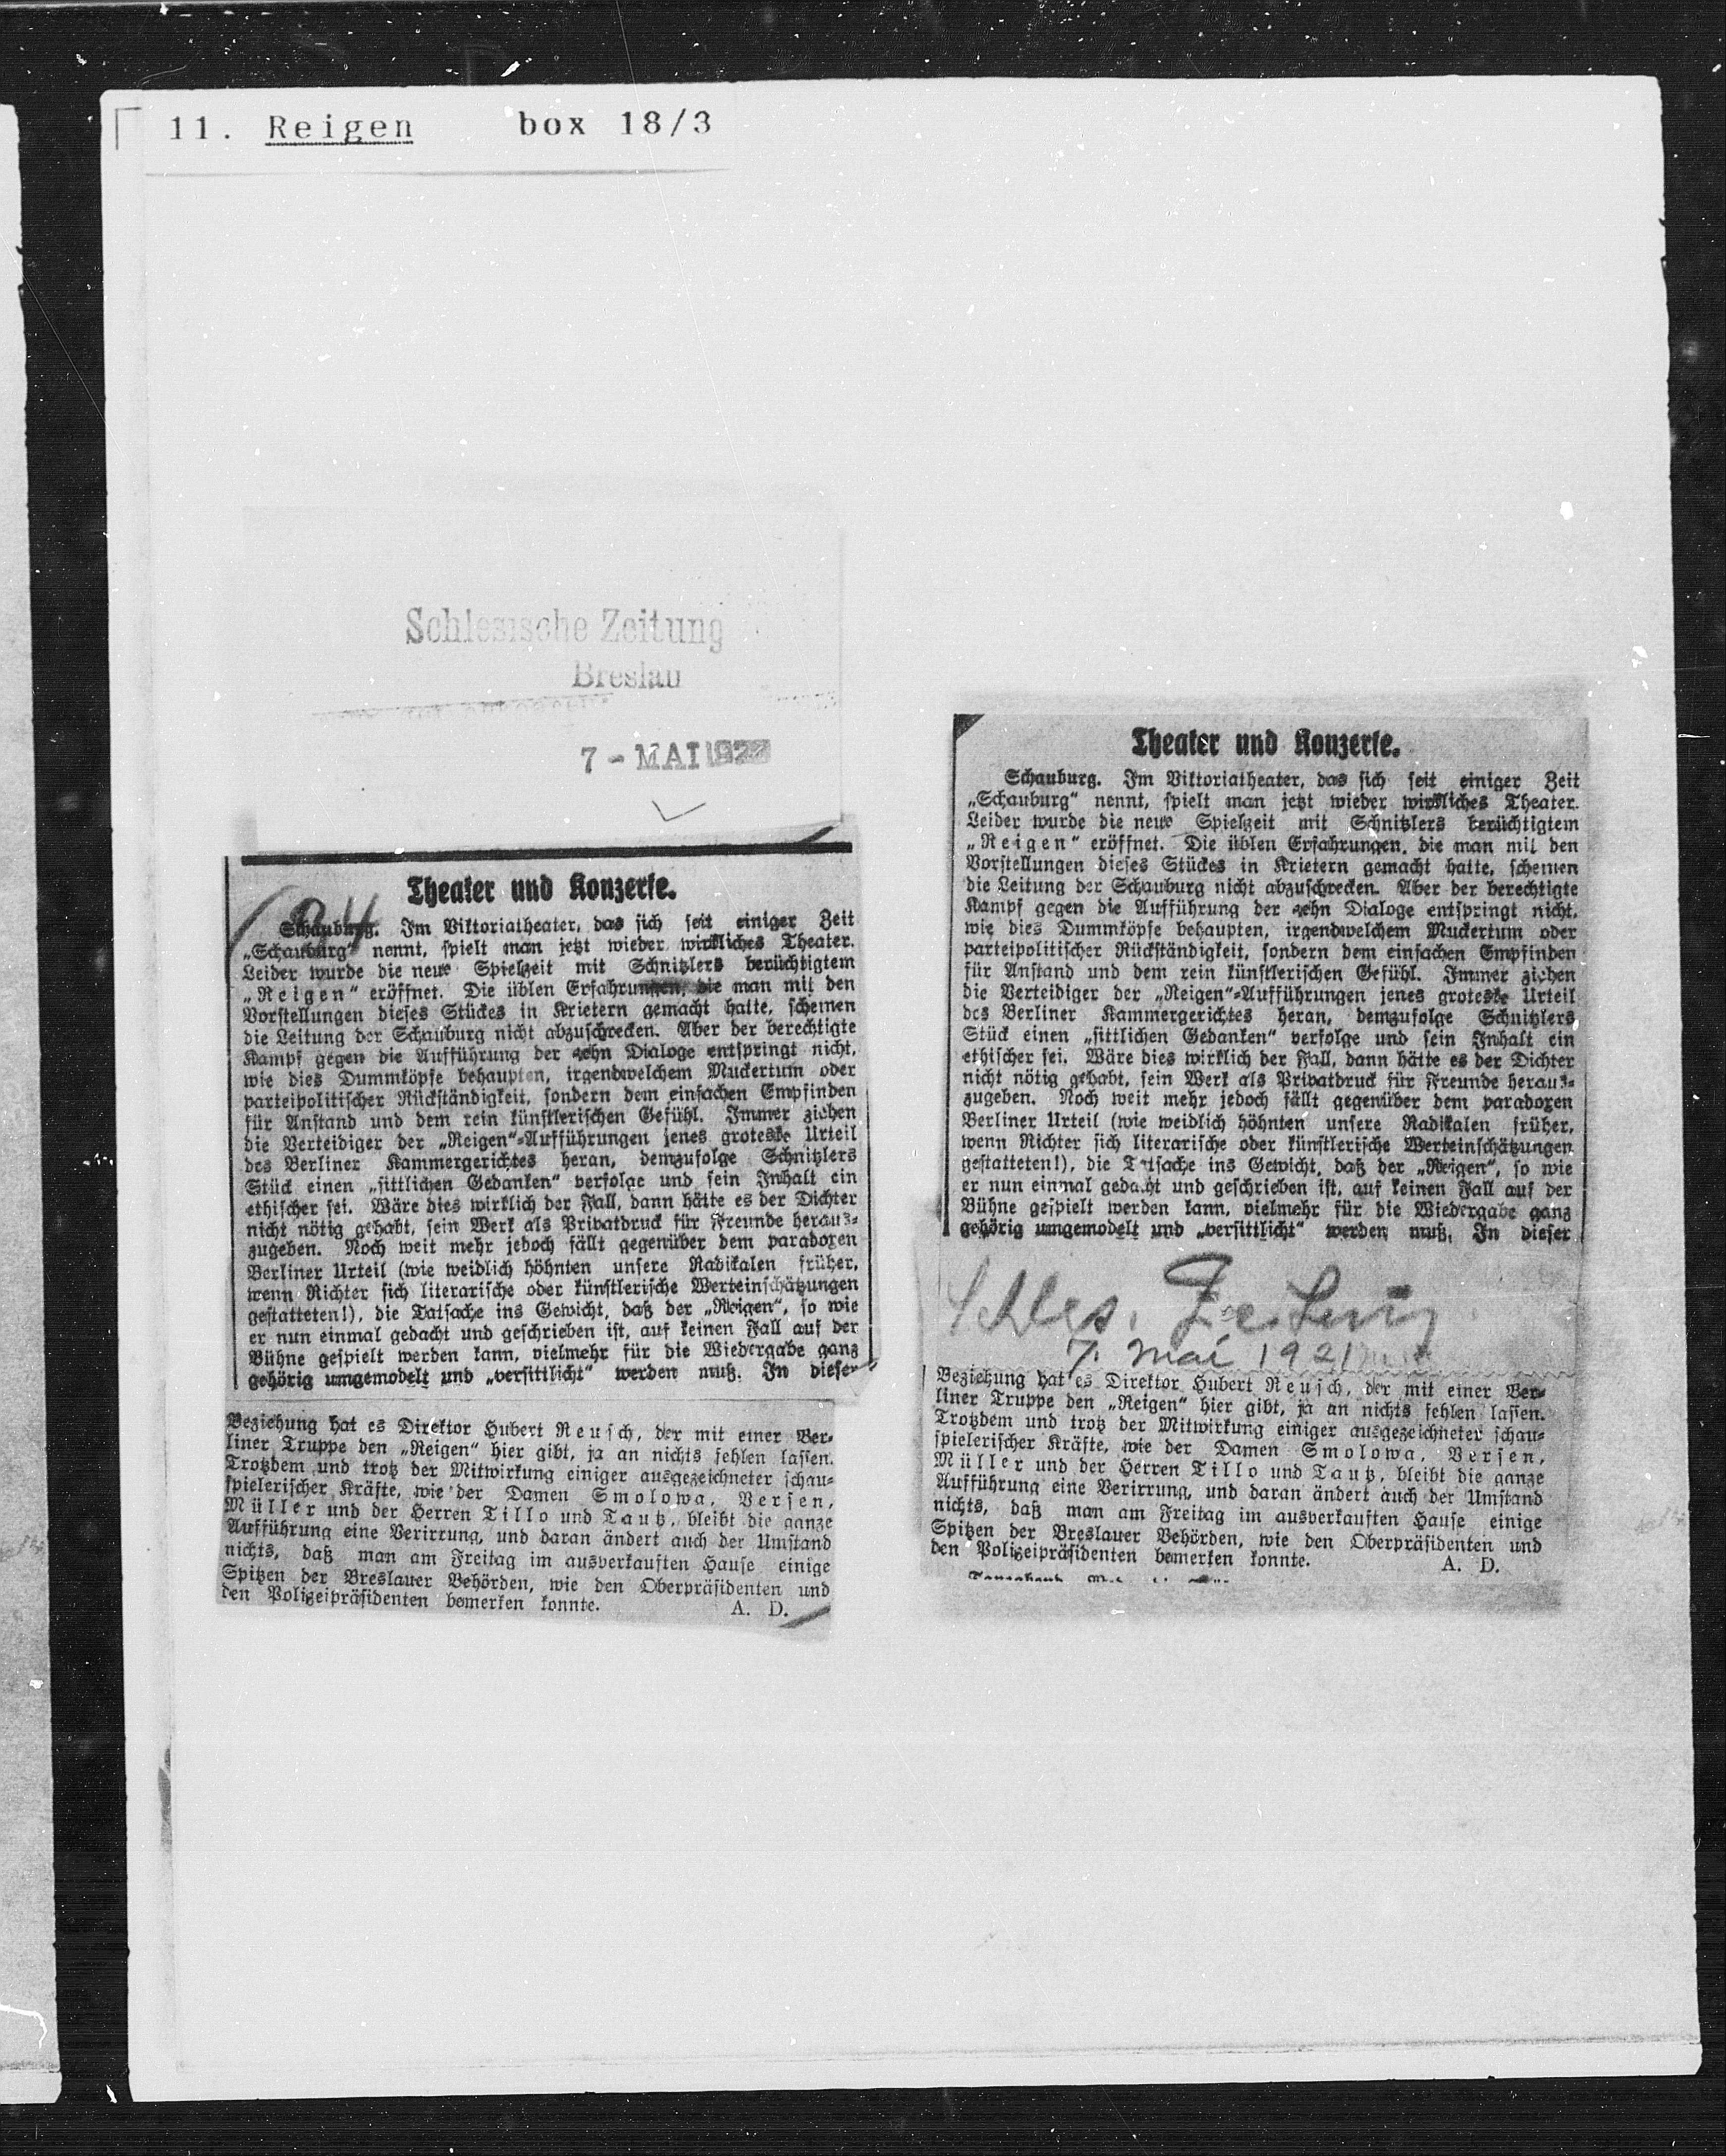 11. Reigen box 18/3
Schlesische Zeitung
Breslau
7 - MAI 192
Theater und Konzerte.
Schauburg. Im Viktoriatheater, das sich seit einiger Zeit
„Schauburg“ nennt, spielt man jetzt wieder wirkliches Theater.
Leider wurde die neue Spielzeit mit Schnitzlers berüchtigtem
„Reigen“ eröffnet. Die üblen Erfahrungen, die man mit den
Vorstellungen dieses Stückes in Krietern gemacht hatte, scheinen
die Leitung der Schauburg nicht abzuschrecken. Aber der berechtigte
Kampf gegen die Aufführung der zehn Dialoge entspringt nicht,
wie dies Dummköpfe behaupten, irgendwelchem Muckertum oder
parteipolitischer Rückständigkeit, sondern dem einfachen Empfinden
für Anstand und dem rein künstlerischen Gefühl. Immer ziehen
die Verteidiger der „Reigen“-Aufführungen jenes groteske Urteil
des Berliner Kammergerichtes heran, demzufolge Schnitzlers
Stück einen „sittlichen Gedanken“ verfolge und sein Inhalt ein
ethischer sei. Wäre dies wirklich der Fall, dann hätte es der Dichter
nicht nötig gehabt, sein Werk als Privatdruck für Freunde heraus-
zugeben. Noch weit mehr jedoch fällt gegenüber dem paradoxen
Berliner Urteil (wie weidlich höhnten unsere Radikalen früher,
wenn Richter sich literarische oder künstlerische Werteinschätzungen
gestatteten!), die Tatsache ins Gewicht, daß der „Reigen“, so wie
er nun einmal gedacht und geschrieben ist, auf keinen Fall auf der
Bühne gespielt werden kann, vielmehr für die Wiedergabe ganz
gehörig umgemodelt und „versittlicht“ werden muß. In dieser
Beziehung hat es Direktor Hubert Reusch, der mit einer Ber-
liner Truppe den „Reigen“ hier gibt, ja an nichts fehlen lassen.
Trotzdem und trotz der Mitwirkung einiger ausgezeichneter schau-
spielerischer Kräfte, wie der Damen Smolowa, Versen,
Müller und der Herren Tillo und Tautz, bleibt die ganze
Aufführung eine Verirrung, und daran ändert auch der Umstand
nichts, daß man am Freitag im ausverkauften Hause einige
Spitzen der Breslauer Behörden, wie den Oberpräsidenten und
den Polizeipräsidenten bemerken konnte. A. D.
Theater und Konzerte.
Schauburg. Im Viktoriatheater, das sich seit einiger Zeit
„Schauburg“ nennt, spielt man jetzt wieder wirkliches Theater.
Leider wurde die neue Spielzeit mit Schnitzlers berüchtigtem
„Reigen“ eröffnet. Die üblen Erfahrungen, die man mit den
Vorstellungen dieses Stückes in Krietern gemacht hatte, scheinen
die Leitung der Schauburg nicht abzuschrecken. Aber der berechtigte
Kampf gegen die Aufführung der zehn Dialoge entspringt nicht,
wie dies Dummköpfe behaupten, irgendwelchem Muckertum oder
parteipolitischer Rückständigkeit, sondern dem einfachen Empfinden
für Anstand und dem rein künstlerischen Gefühl. Immer ziehen
die Verteidiger der „Reigen“-Aufführungen jenes groteske Urteil
des Berliner Kammergerichtes heran, demzufolge Schnitzlers
Stück einen „sittlichen Gedanken“ verfolge und sein Inhalt ein
ethischer sei. Wäre dies wirklich der Fall, dann hätte es der Dichter
nicht nötig gehabt, sein Werk als Privatdruck für Freunde heraus-
zugeben. Noch weit mehr jedoch fällt gegenüber dem paradoxen
Berliner Urteil (wie weidlich höhnten unsere Radikalen früher,
wenn Richter sich literarische oder künstlerische Werteinschätzungen
gestatteten!), die Tatsache ins Gewicht, daß der „Reigen“, so wie
er nun einmal gedacht und geschrieben ist, auf keinen Fall auf der
Bühne gespielt werden kann, vielmehr für die Wiedergabe ganz
gehörig umgemodelt und „versittlicht“ werden muß. In dieser
Schles. Zeitung
7. Mai 1921
Beziehung hat es Direktor Hubert Reusch, der mit einer Ber-
liner Truppe den „Reigen“ hier gibt, ja an nichts fehlen lassen.
Trotzdem und trotz der Mitwirkung einiger ausgezeichneter schau-
spielerischer Kräfte, wie der Damen Smolowa, Versen,
Müller und der Herren Tillo und Tautz, bleibt die ganze
Aufführung eine Verirrung, und daran ändert auch der Umstand
nichts, daß man am Freitag im ausverkauften Hause einige
Spitzen der Breslauer Behörden, wie den Oberpräsidenten und
den Polizeipräsidenten bemerken konnte. A. D.